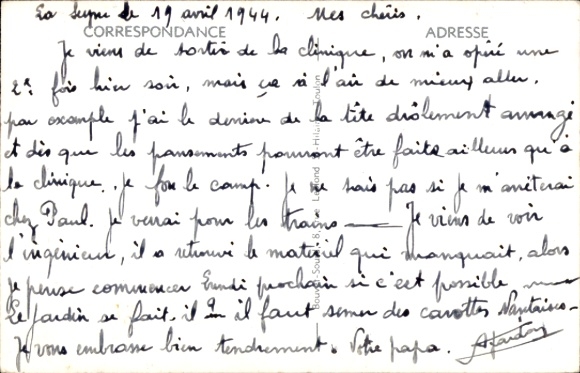 La Seyne le 19 avril 1944. Mes chéris.
CORRESPONDANCE ADRESSE
Je viens de sortir de la clinique, on m'a opéré une
2e fois hier soir, mais ça à l'air de mieux aller.
par exemple j'ai le derrière de la tête drôlement arrangé
et dès que les pansements pourront être faits ailleurs qu'à
la clinique, je fou le camp. Je ne sais pas si je m'arrêterai
chez Paul. Je verrai pour les trains — Je viens de voir
l'ingénieur, il a retrouvé le matériel qui manquait, alors
je pense commencer Lundi prochain si c'est possible,
Le jardin se fait, il faut semer des carottes Nantaises -
Je vous embrasse bien tendrement. Votre papa.
Toulon